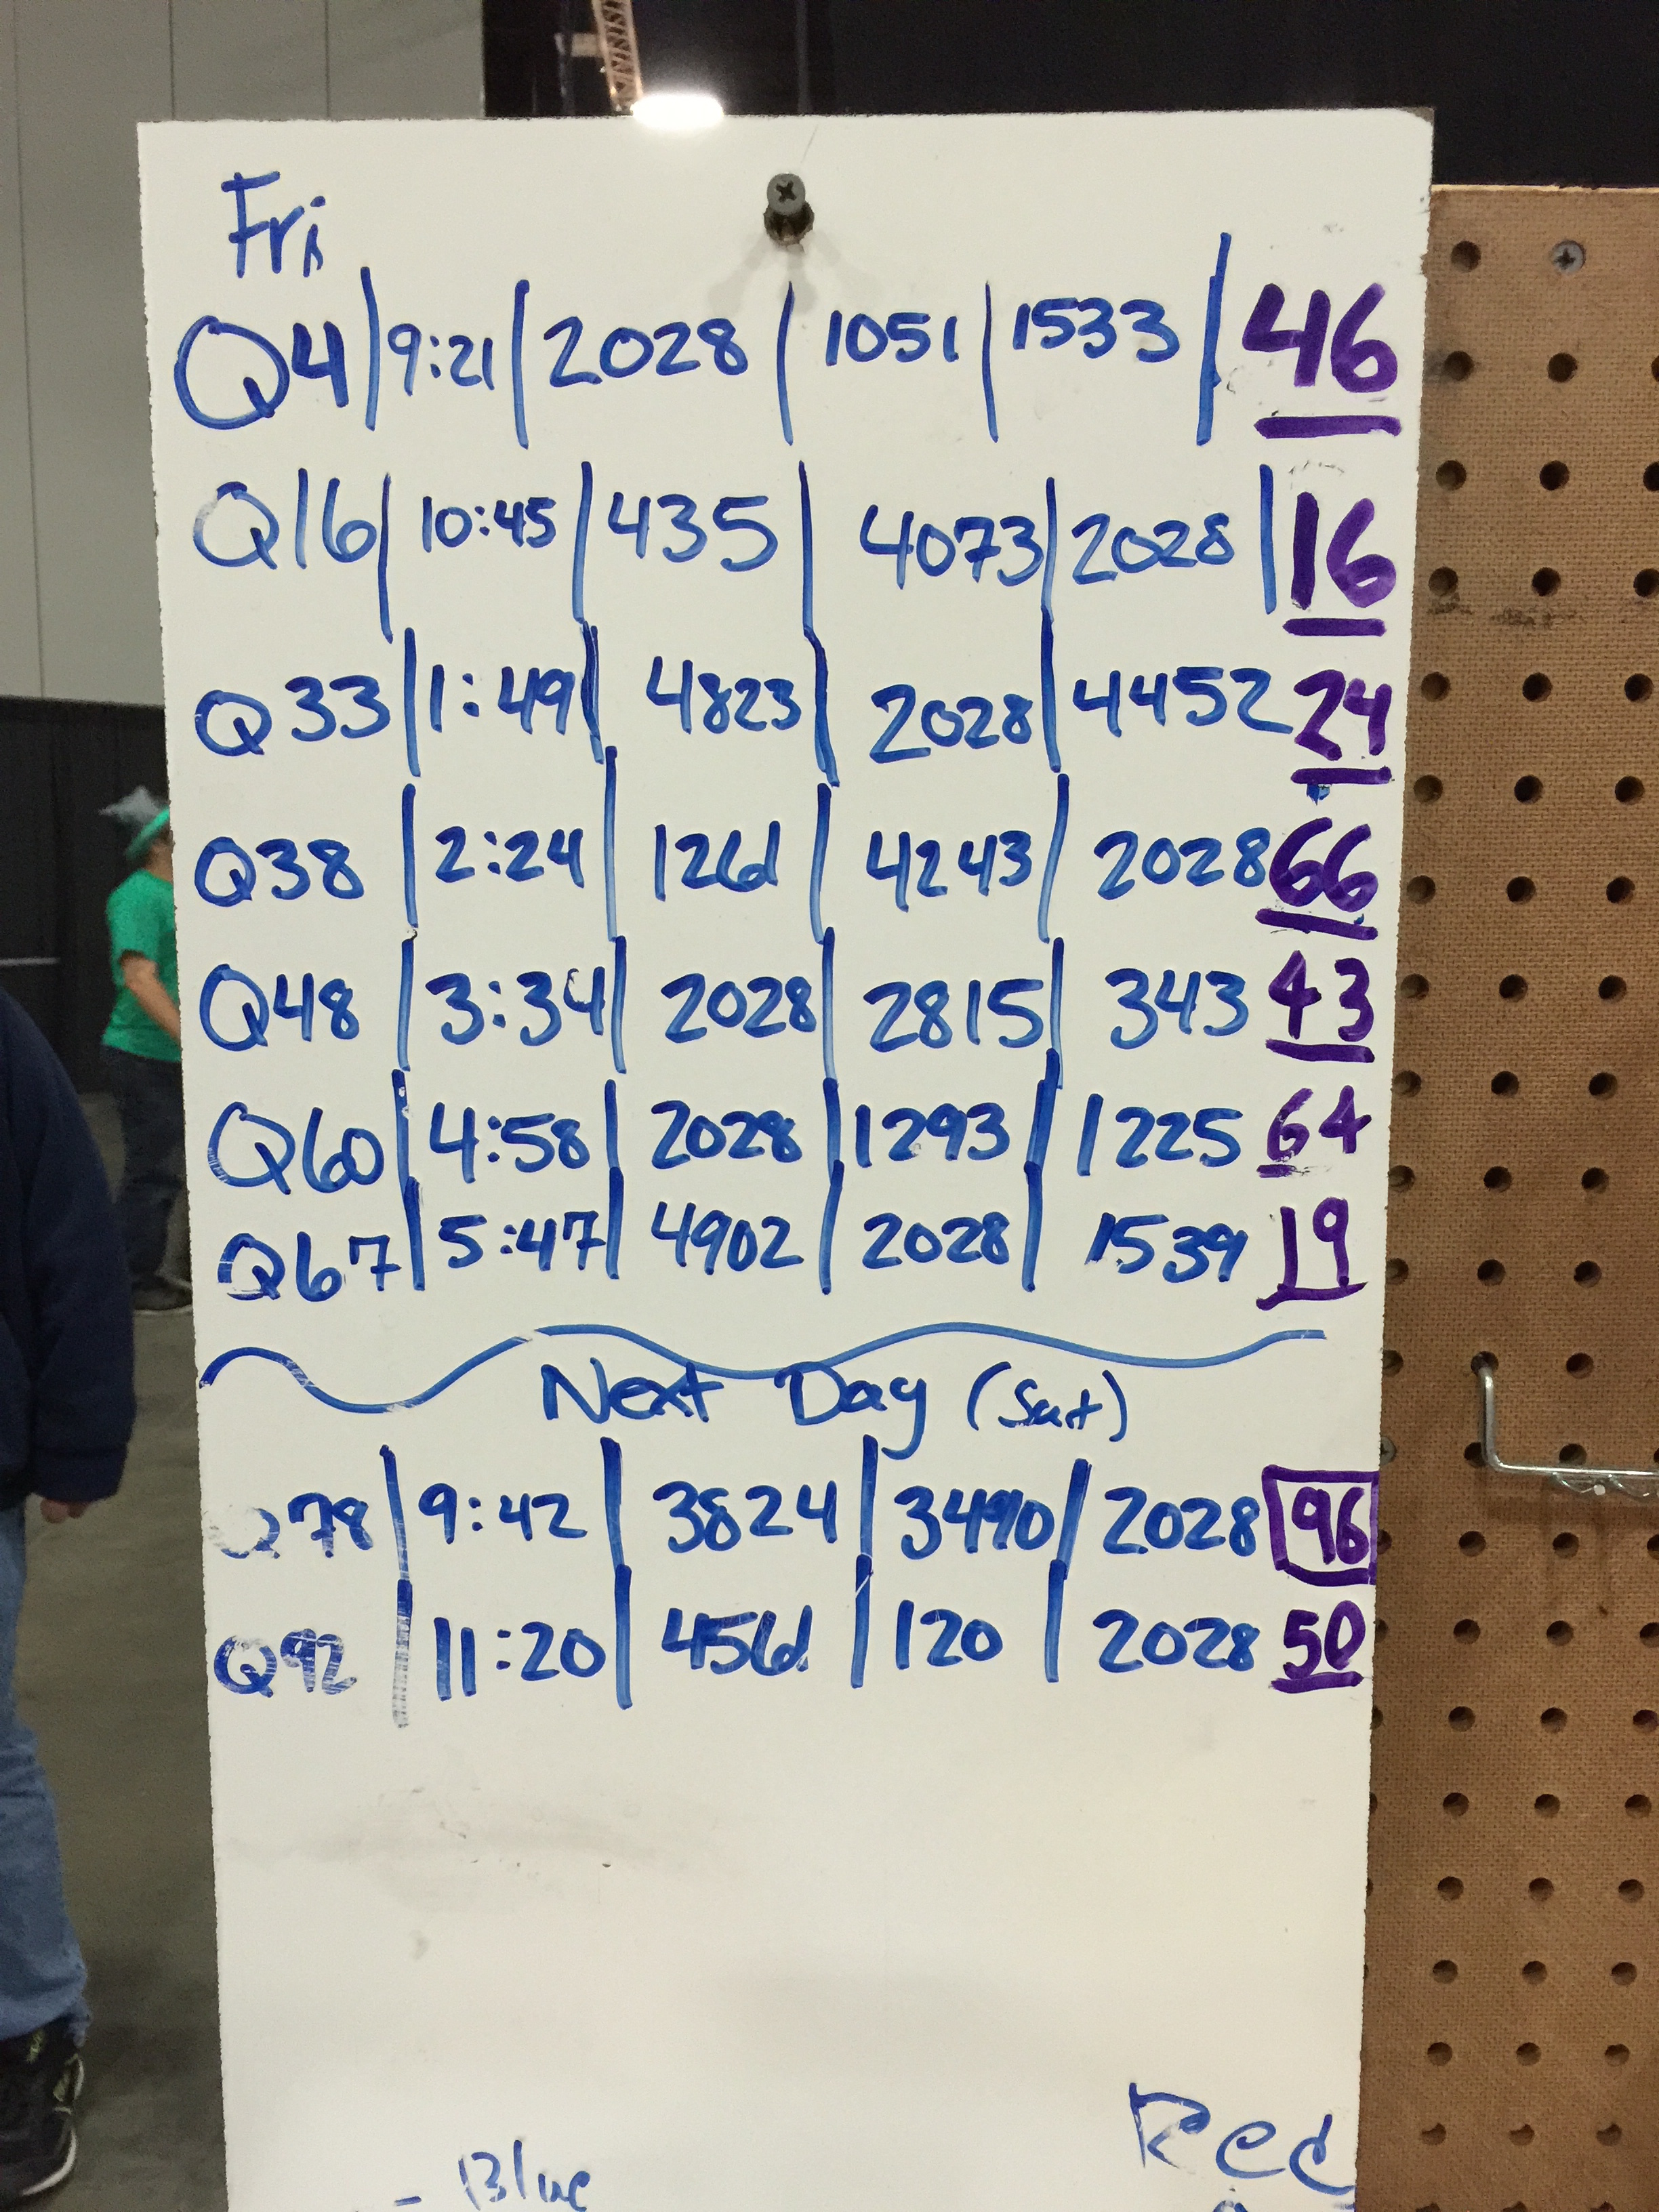 Fri
Q4 | 9:21 | 2028 | 1051 | 1533 | 46
Q16 | 10:45 | 435 | 4073 | 2028 | 16
Q33 | 1:49 | 4823 | 2028 | 4452 24
Q38 | 2:24 | 1261 | 4243 | 2028 66
Q48 | 3:34 | 2028 | 2815 | 343 43
Q60 | 4:58 | 2028 | 1293 | 1225 64
Q67 | 5:47 | 4902 | 2028 | 1539 19
Next Day (Sat)
Q78 | 9:42 | 3824 | 3490 | 2028 96
Q92 | 11:20 | 4561 | 120 | 2028 50
Red
- Blue